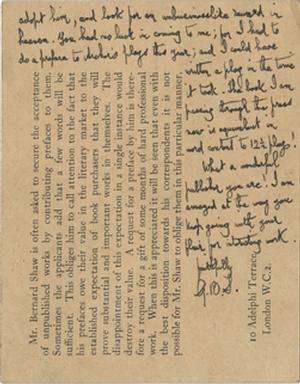 adopt him, and look for an unbusinesslike reward in
heaven. You had no luck in coming to me; for I had to
do a preface to Archer's plays this year; and I could have
written a play in the time
it took. The book I am
passing through the press
now is equivalent in
word content to 12½ plays!
What a wonderful
publisher you are! I am
amazed at the way you
keep going with your
flair for interesting work.
faithfully
G.B.S.
Mr. Bernard Shaw is often asked to secure the acceptance
of unpublished works by contributing prefaces to them.
Sometimes the applicants add that a few words will be
sufficient. This obliges him to call attention to the fact that
his prefaces owe their value in the literary market to the
established expectation of book purchasers that they will
prove substantial and important works in themselves. The
disappointment of this expectation in a single instance would
destroy their value. A request for a preface by him is there-
fore a request for a gift of some months of hard professional
work. When this is appreciated it will be seen that even with
the best disposition towards his correspondents it is not
possible for Mr. Shaw to oblige them in this particular manner.
10 Adelphi Terrace,
London W.C.2.